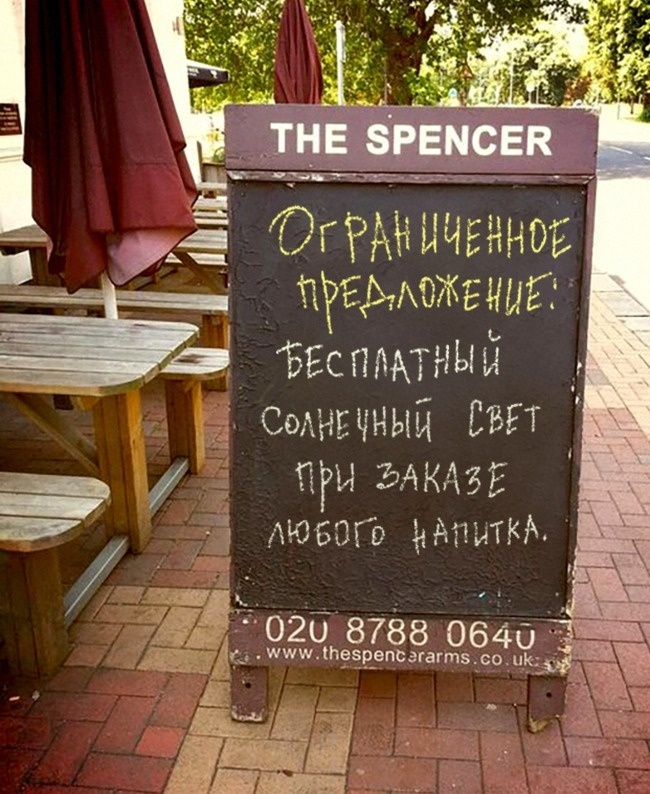 THE SPENCER
Ограниченное
предложение:
Бесплатный
солнечный свет
при заказе
любого напитка.
020 8788 0640
www.thespencerarms.co.uk